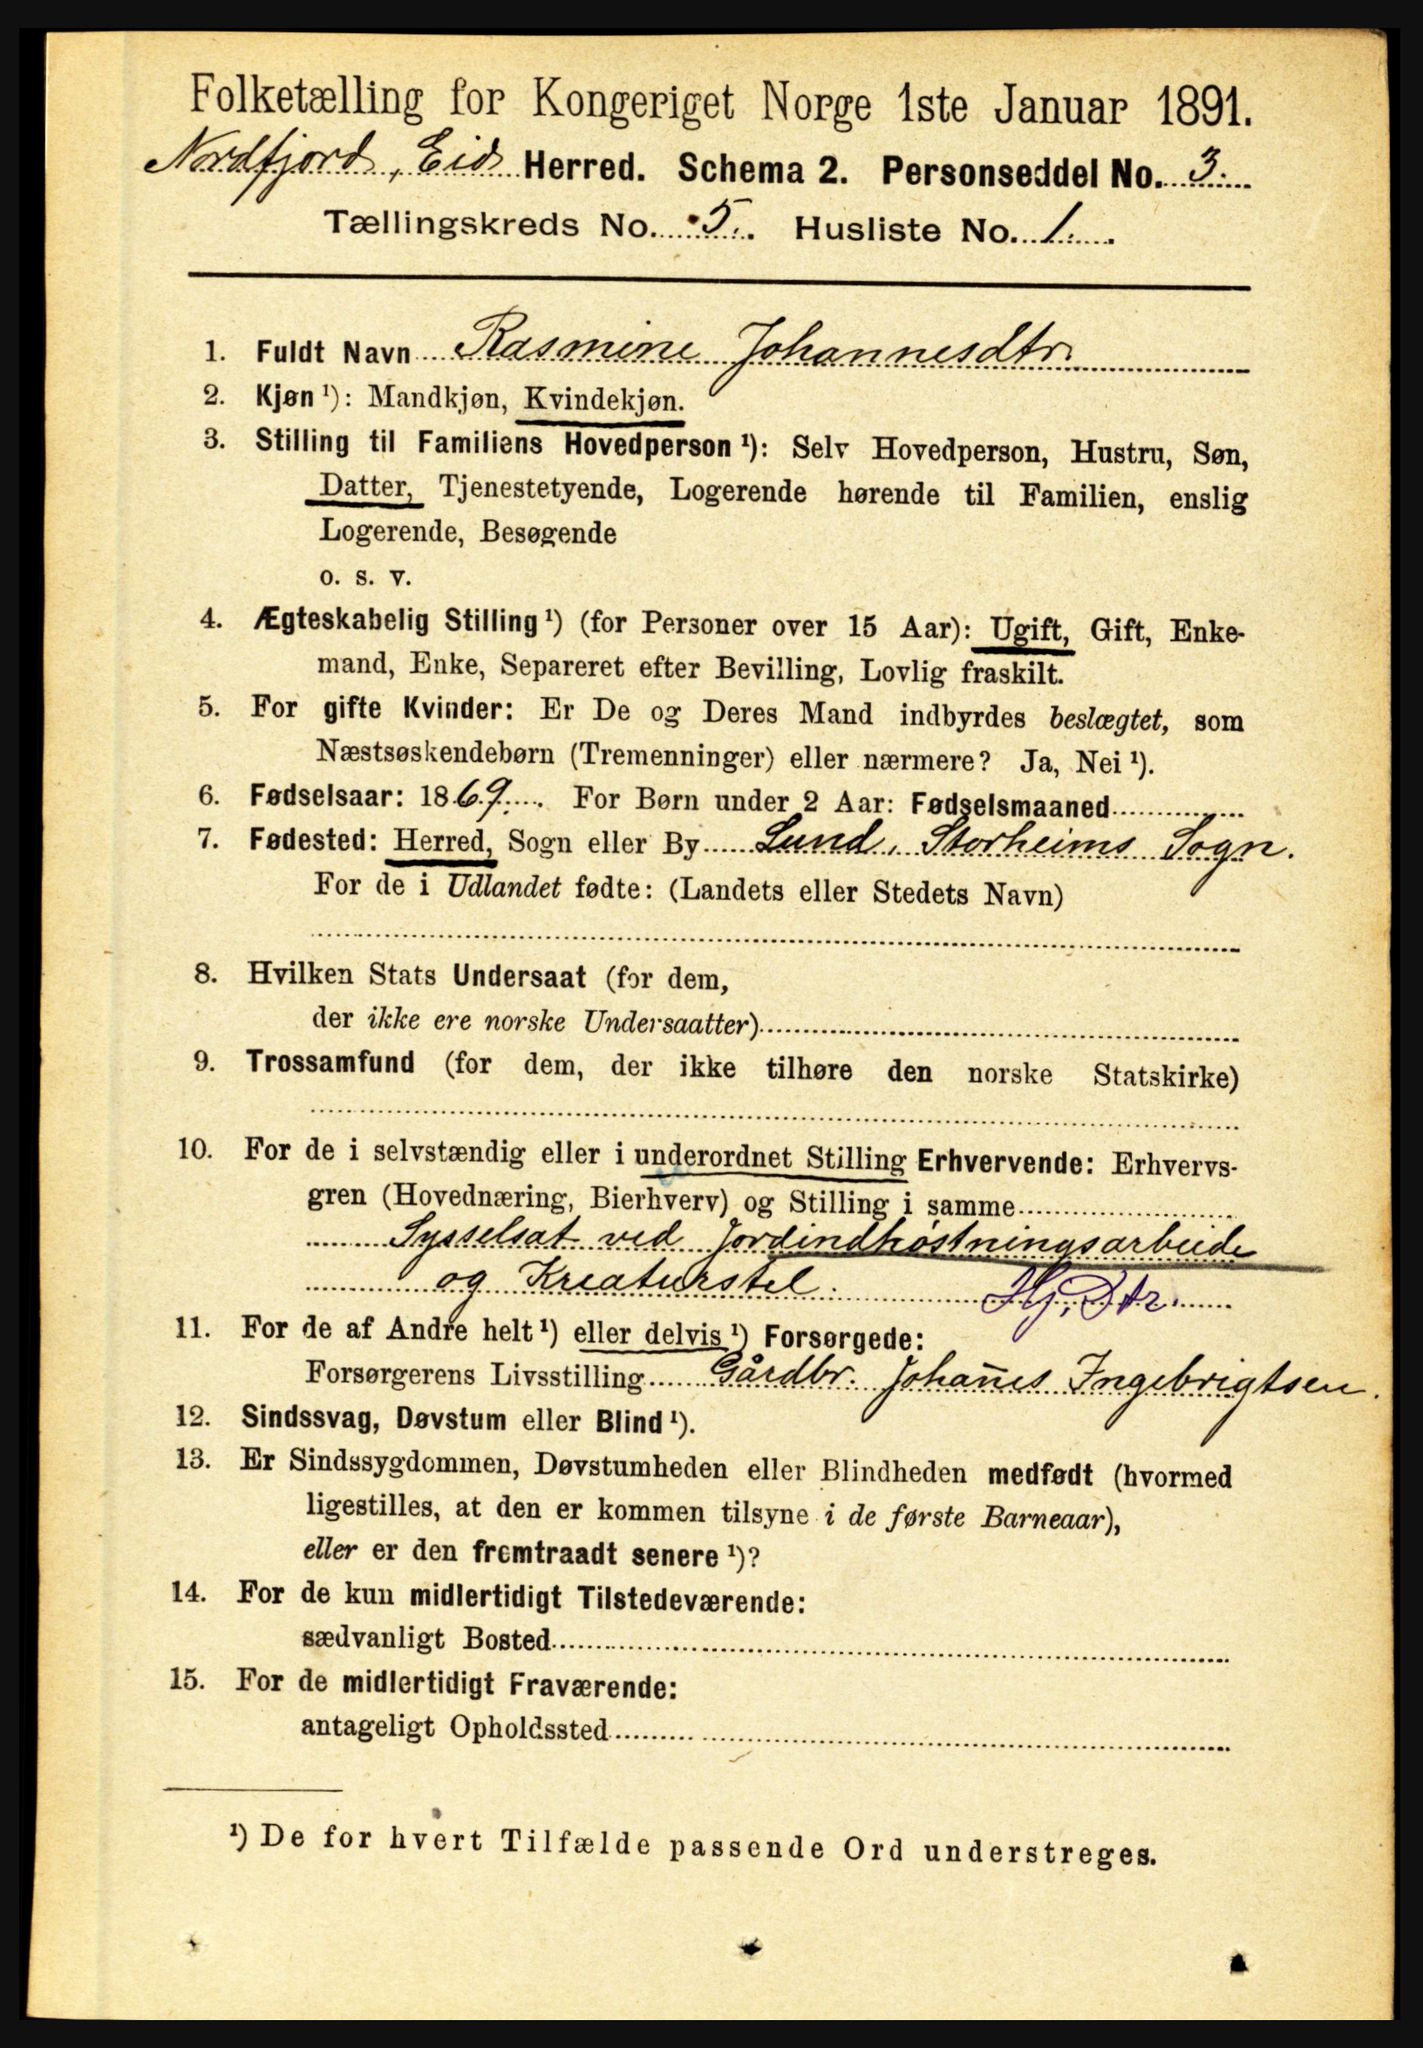 Folketælling for Kongeriget Norge 1ste Januar 1891.
Nordfjord, Eid Herred. Schema 2. Personseddel No. 3.
Tællingskreds No. 5. Husliste No. 1.
1. Fuldt Navn Rasmine Johannesdtr.
2. Kjøn ¹): Mandkjøn, Kvindekjøn.
3. Stilling til Familiens Hovedperson ¹): Selv Hovedperson, Hustru, Søn,
Datter, Tjenestetyende, Logerende hørende til Familien, enslig
Logerende, Besøgende
o. s. v.
4. Ægteskabelig Stilling ¹) (for Personer over 15 Aar): Ugift, Gift, Enke-
mand, Enke, Separeret efter Bevilling, Lovlig fraskilt.
5. For gifte Kvinder: Er De og Deres Mand indbyrdes beslægtet, som
Næstsøskendebørn (Tremenninger) eller nærmere? Ja, Nei ¹).
6. Fødselsaar: 1869. For Børn under 2 Aar: Fødselsmaaned
7. Fødested: Herred, Sogn eller By Lund, Storheims Sogn.
For de i Udlandet fødte: (Landets eller Stedets Navn)
8. Hvilken Stats Undersaat (for dem,
der ikke ere norske Undersaatter)
9. Trossamfund (for dem, der ikke tilhøre den norske Statskirke)
10. For de i selvstændig eller i underordnet Stilling Erhvervende: Erhvervs-
gren (Hovednæring, Bierhverv) og Stilling i samme
Sysselsat ved Jordindhøstningsarbeide
og Kreaturstel. Hj. Dtr.
11. For de af Andre helt ¹) eller delvis ¹) Forsørgede:
Forsørgerens Livsstilling Gårdbr. Johan̄es Ingebrigtsen.
12. Sindssvag, Døvstum eller Blind ¹).
13. Er Sindssygdommen, Døvstumheden eller Blindheden medfødt (hvormed
ligestilles, at den er kommen tilsyne i de første Barneaar),
eller er den fremtraadt senere ¹)?
14. For de kun midlertidigt Tilstedeværende:
sædvanligt Bosted
15. For de midlertidigt Fraværende:
antageligt Opholdssted
¹) De for hvert Tilfælde passende Ord understreges.